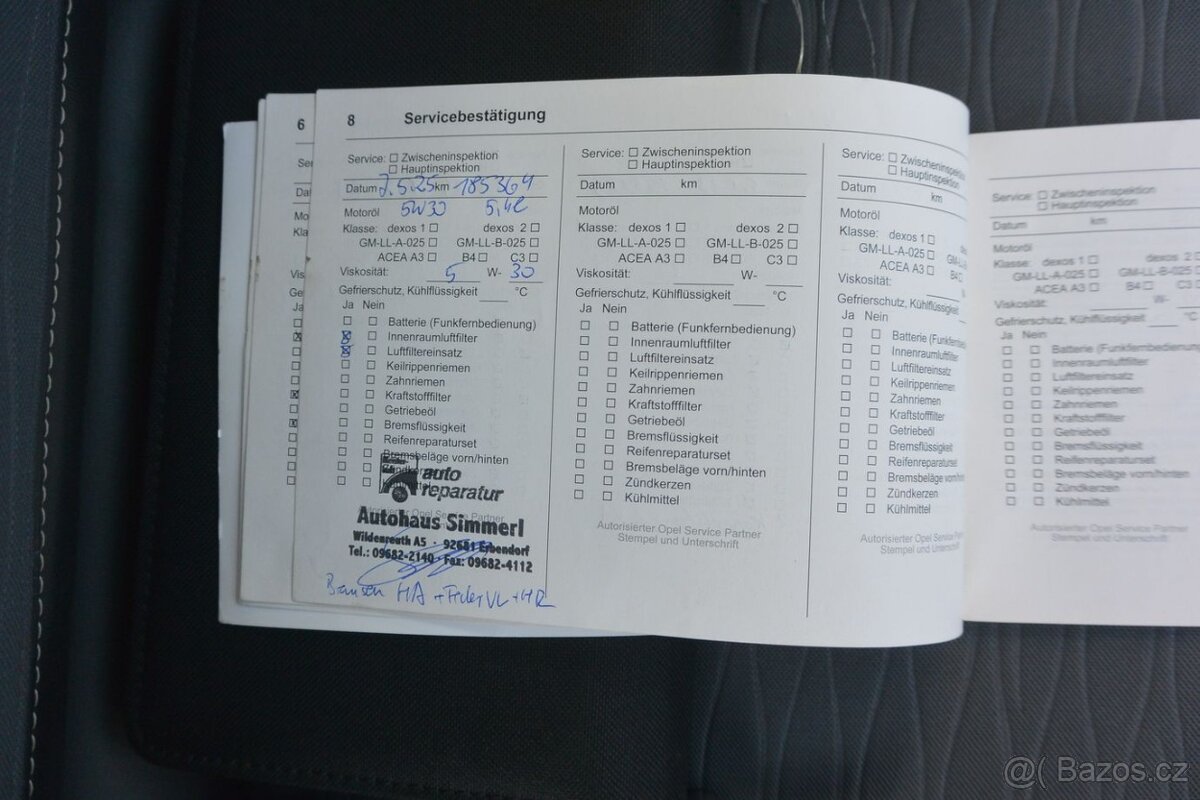 6
8 Servicebestätigung
Service: ☐ Zwischeninspektion
☐ Hauptinspektion
Datum 2.5.25 km 185364
Motoröl 5W30 5,4l
Klasse: dexos 1 ☐ dexos 2 ☐
GM-LL-A-025 ☐ GM-LL-B-025 ☐
ACEA A3 ☐ B4 ☐ C3 ☐
Viskosität: 5 W- 30
Gefrierschutz, Kühlflüssigkeit ____ °C
Ja Nein
☐ ☐ Batterie (Funkfernbedienung)
☒ ☐ Innenraumluftfilter
☒ ☐ Luftfiltereinsatz
☐ ☐ Keilrippenriemen
☐ ☐ Zahnriemen
☐ ☐ Kraftstofffilter
☐ ☐ Getriebeöl
☐ ☐ Bremsflüssigkeit
☐ ☐ Reifenreparaturset
☐ ☐ Bremsbeläge vorn/hinten
auto
reparatur
Autohaus Simmerl
Wildenreuth A5 · 92681 Erbendorf
Tel.: 09682-2140 · Fax: 09682-4112
Bremsen HA + Feder VL + HR
Service: ☐ Zwischeninspektion
☐ Hauptinspektion
Datum km
Motoröl
Klasse: dexos 1 ☐ dexos 2 ☐
GM-LL-A-025 ☐ GM-LL-B-025 ☐
ACEA A3 ☐ B4 ☐ C3 ☐
Viskosität: ____ W- ____
Gefrierschutz, Kühlflüssigkeit ____ °C
Ja Nein
☐ ☐ Batterie (Funkfernbedienung)
☐ ☐ Innenraumluftfilter
☐ ☐ Luftfiltereinsatz
☐ ☐ Keilrippenriemen
☐ ☐ Zahnriemen
☐ ☐ Kraftstofffilter
☐ ☐ Getriebeöl
☐ ☐ Bremsflüssigkeit
☐ ☐ Reifenreparaturset
☐ ☐ Bremsbeläge vorn/hinten
☐ ☐ Zündkerzen
☐ ☐ Kühlmittel
Autorisierter Opel Service Partner
Stempel und Unterschrift
Service: ☐ Zwischeninspektion
☐ Hauptinspektion
Datum km
Motoröl
Klasse: dexos 1 ☐
GM-LL-A-025 ☐
ACEA A3 ☐ B4
Viskosität:
Gefrierschutz, Kühlflüssigkeit
Ja Nein
☐ ☐ Batterie (Funkfernbe
☐ ☐ Innenraumluftfilter
☐ ☐ Luftfiltereinsatz
☐ ☐ Keilrippenriemen
☐ ☐ Zahnriemen
☐ ☐ Kraftstofffilter
☐ ☐ Getriebeöl
☐ ☐ Bremsflüssigkeit
☐ ☐ Reifenreparaturset
☐ ☐ Bremsbeläge vorn/h
☐ ☐ Zündkerzen
☐ ☐ Kühlmittel
Autorisierter Opel Service Pa
Stempel und Unterschrift
Service: ☐ Zwischeninspektion
☐ Hauptinspektion
Datum km
Motoröl
Klasse: dexos 1 ☐ dexos 2
GM-LL-A-025 ☐ GM-LL-B-025
ACEA A3 ☐ B4 ☐ C3
Viskosität: W-
Gefrierschutz, Kühlflüssigkeit ____ °C
Ja Nein
☐ ☐ Batterie (Funkfernbedienung
☐ ☐ Innenraumluftfilter
☐ ☐ Luftfiltereinsatz
☐ ☐ Keilrippenriemen
☐ ☐ Zahnriemen
☐ ☐ Kraftstofffilter
☐ ☐ Getriebeöl
☐ ☐ Bremsflüssigkeit
☐ ☐ Reifenreparaturset
☐ ☐ Bremsbeläge vorn/hinten
☐ ☐ Zündkerzen
☐ ☐ Kühlmittel
Autorisierter Opel Service Partner
Stempel und Unterschrift
@( Bazos.cz